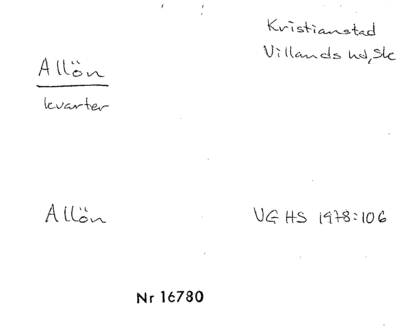 Kristianstad
Villands hd, Sk
Allön
kvarter
Allön
VGHS 1978:106
Nr 16780